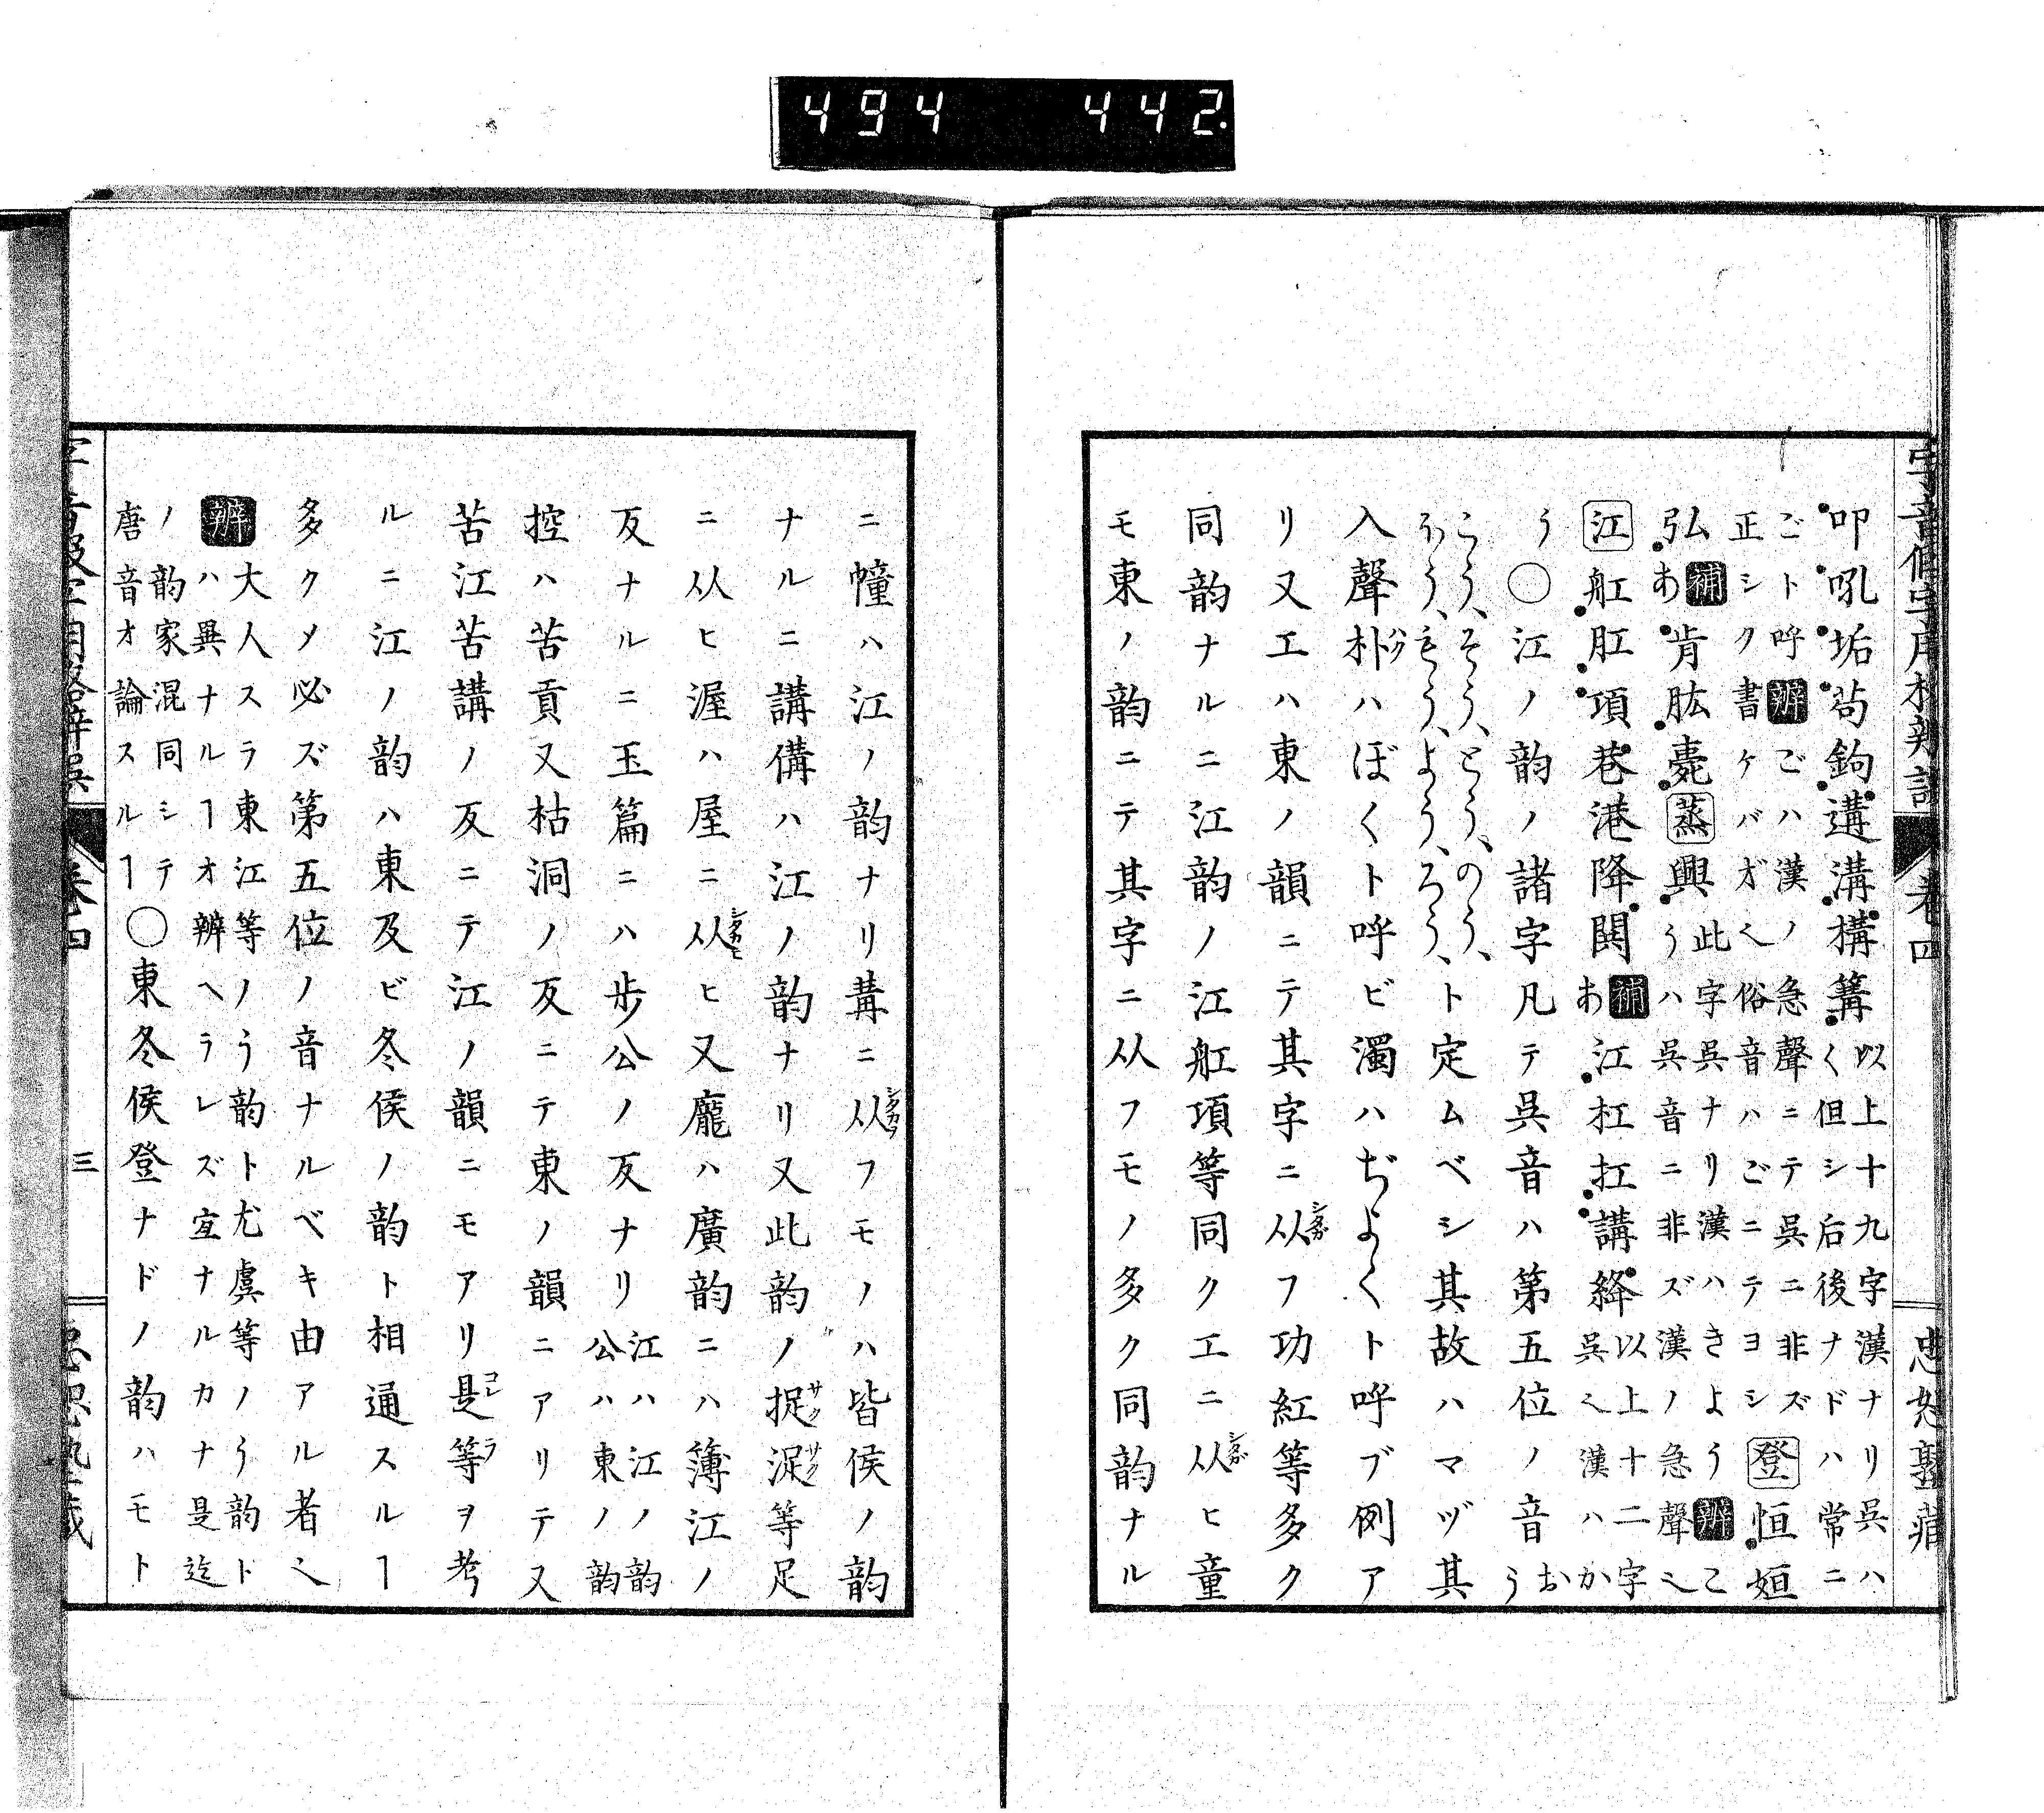 494 442.
叩吼垢苟鉤遘溝構篝以上十九字漢ナリ呉ハ
く但シ后後ナドハ常ニ
ごト呼辨ごハ漢ノ急聲ニテ呉ニ非ズ
正シク書ケバオ俗音ハごニテヨシ登恒姮
弘補肯肱薨蒸興此字呉ナリ漢ハきよう辨こ
あうハ呉音ニ非ズ漢ノ急聲
江舡肛項巷港降閧補江杠扛講絳以上十二字
あ呉漢ハか
う〇江ノ韵ノ諸字凡テ呉音ハ第五位ノ音お
う
こう、そう、とう、のう、
ほう、もう、よう、ろう、ト定ムベシ其故ハマヅ其
入聲朴ハぼくト呼ビ濁ハぢよくト呼ブ例ア
リ又エハ東ノ韻ニテ其字ニ从フ功紅等多ク
同韵ナルニ江韵ノ江舡項等同クエニ从ヒ童
モ東ノ韵ニテ其字ニ从フモノ多ク同韵ナル
ニ幢ハ江ノ韵ナリ冓ニ从フモノハ皆侯ノ韵
ナルニ講傋ハ江ノ韵ナリ又此韵ノ捉浞等足
ニ从ヒ渥ハ屋ニ从ヒ又龐ハ廣韵ニハ簿江ノ
反ナルニ玉篇ニハ步公ノ反ナリ江ハ江ノ韵
公ハ東ノ韵
控ハ苦貢又枯洞ノ反ニテ東ノ韻ニアリテ又
苦江苦講ノ反ニテ江ノ韻ニモアリ是等ヲ考
ルニ江ノ韵ハ東及ビ冬侯ノ韵ト相通スルヿ
多クメ必ズ第五位ノ音ナルベキ由アル者
辨大人スラ東江等ノう韵ト尤虞等ノう韵ト
ハ異ナルヿオ辨ヘラレズ宜ナルカナ是迄
ノ韵家混同シテ
唐音オ論スルヿ〇東冬侯登ナドノ韵ハモト
卷四
三